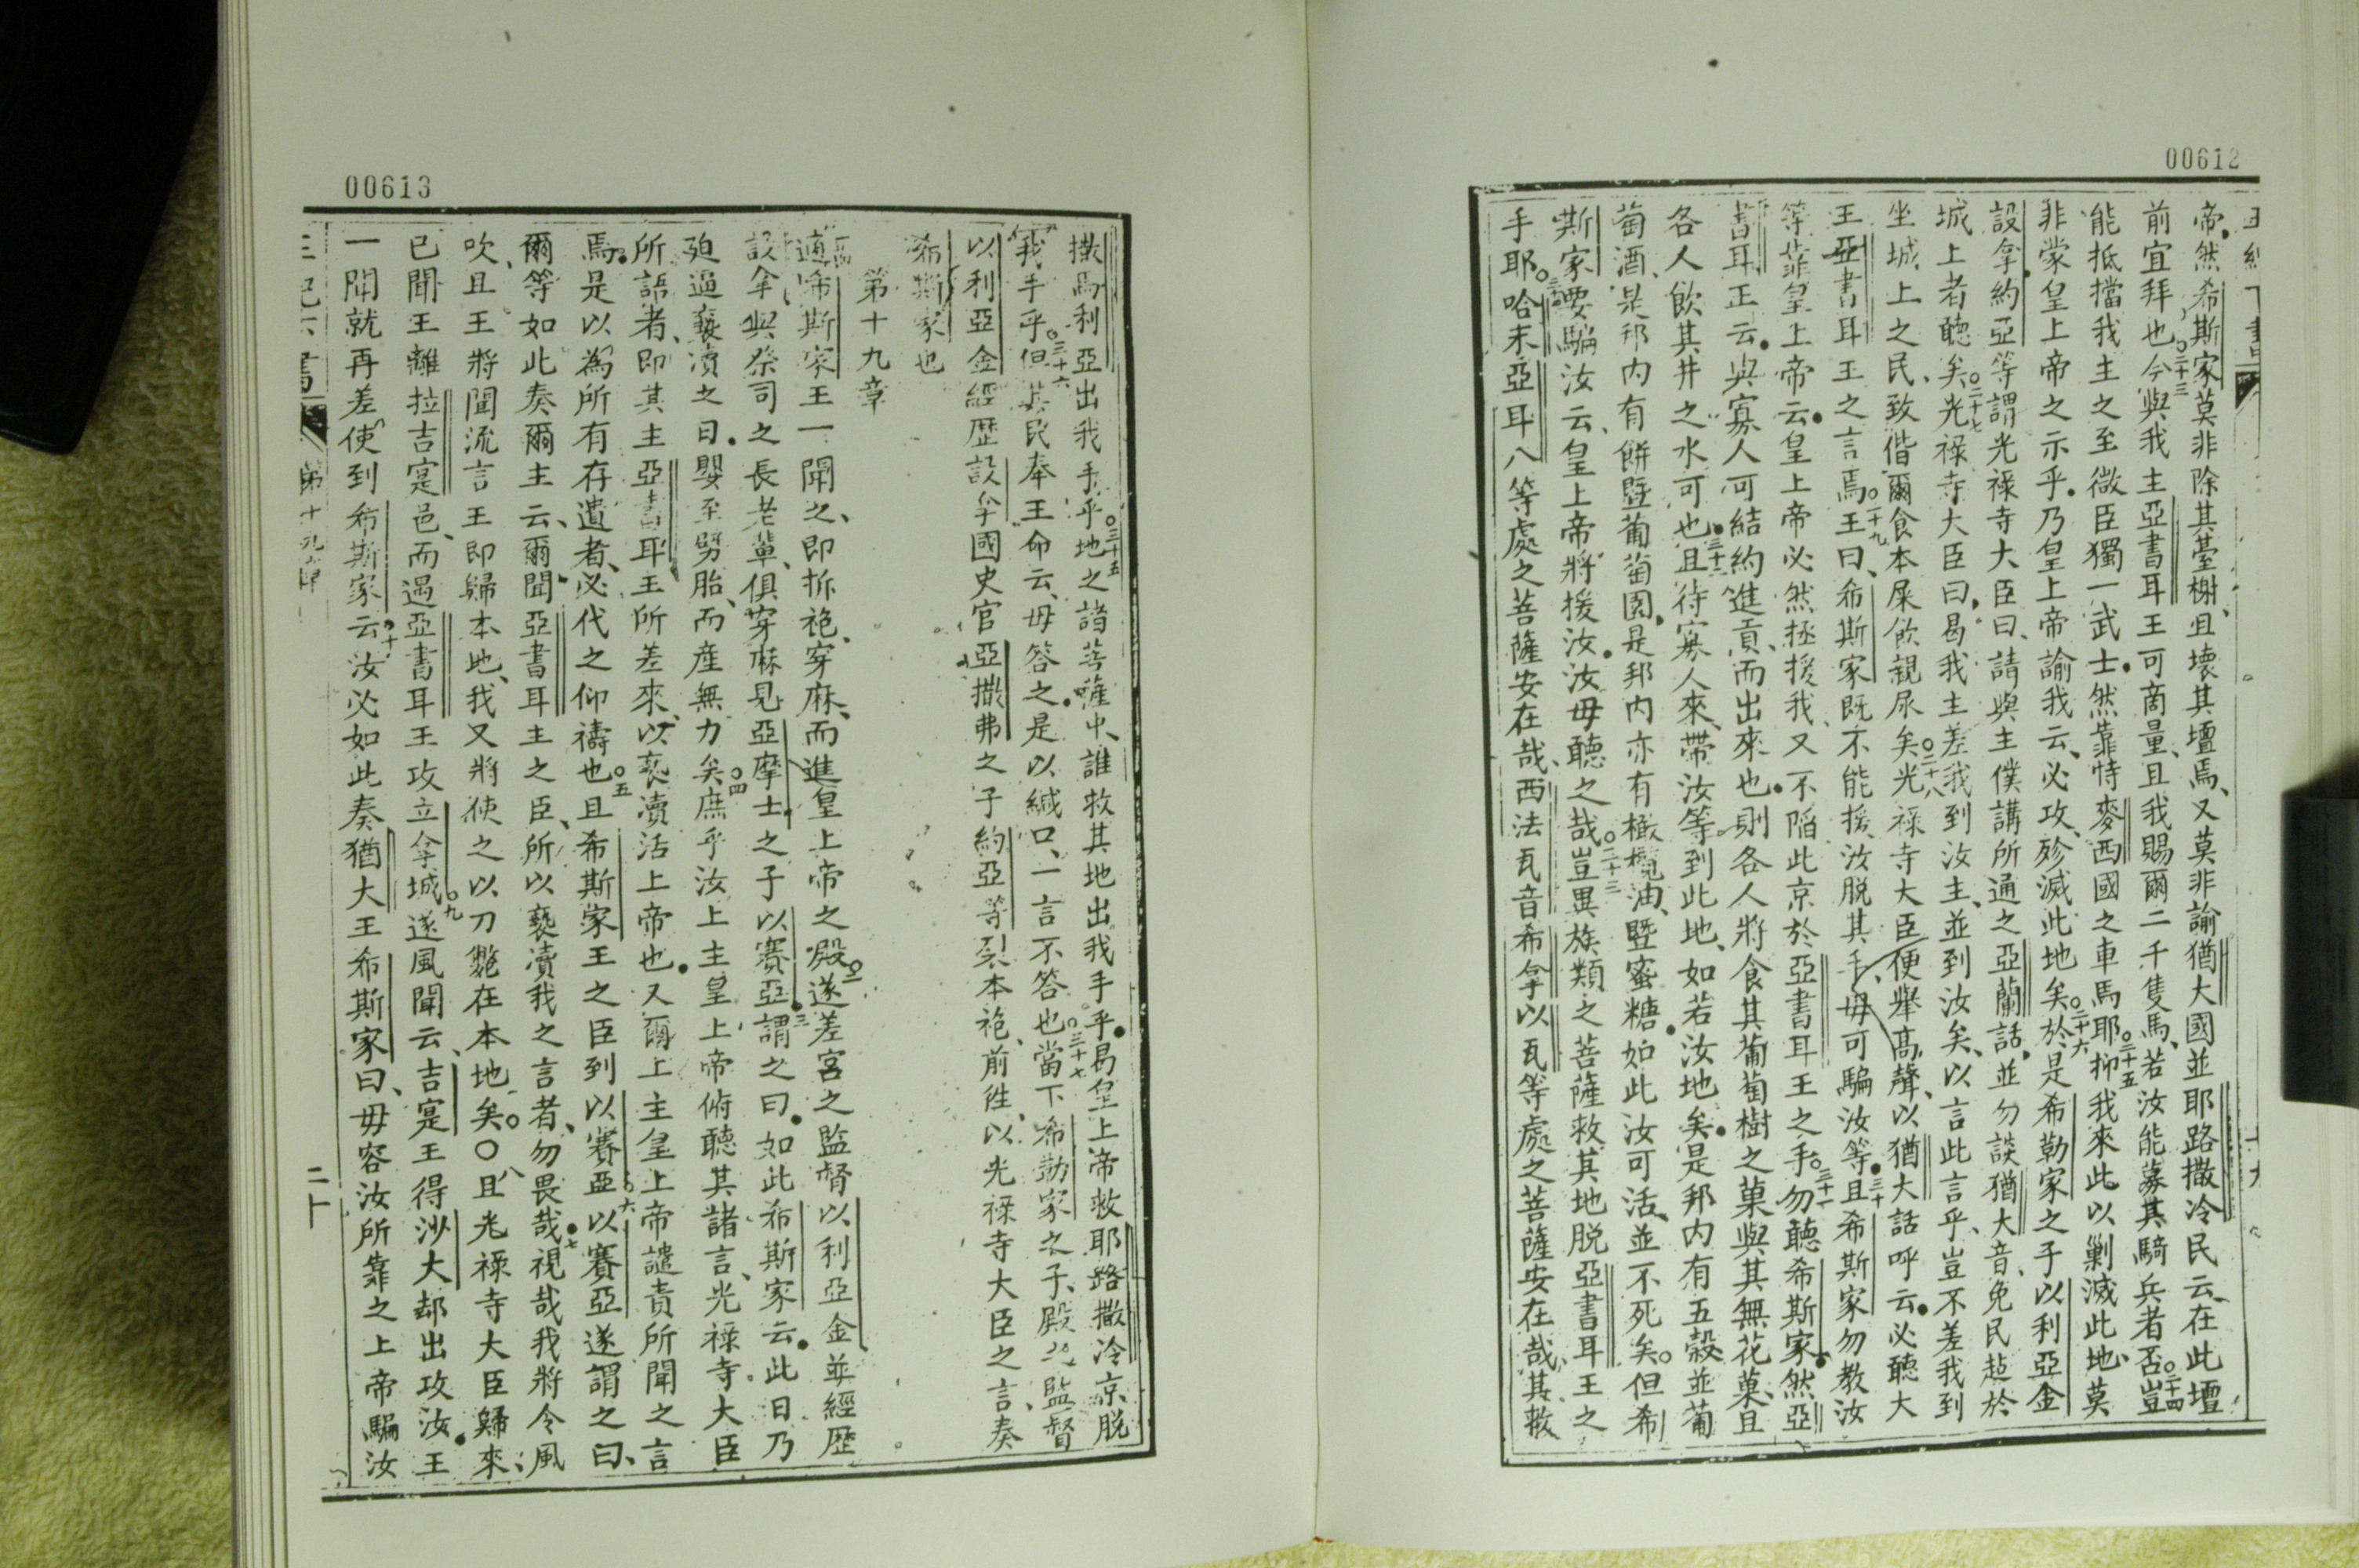 00612
帝、然希斯家莫非除其臺榭、且壞其壇焉、又莫非諭猶大國並耶路撒冷民云、在此壇
前宜拜也。二十三今與我主亞書耳王可商量、且我賜爾二千隻馬、若汝能募其騎兵者否。二十四豈
能抵擋我主之至微臣獨一武士、然靠恃麥西國之車馬耶。二十五抑我來此以剿滅此地、莫
非蒙皇上帝之示乎、乃皇上帝諭我云、必攻、殄滅此地矣。二十六於是希勒家之子以利亞金
設拿、約亞等謂光祿寺大臣曰、請與主僕講所通之亞蘭話、並勿談猶大音、免民趷於
城上者聽矣。二十七光祿寺大臣曰、曷我主差我到汝主、並到汝矣、以言此言乎、豈不差我到
坐城上之民、致偕爾食本屎飲親尿矣。二十八光祿寺大臣便舉高聲、以猶大話呼云、必聽大
王亞書耳王之言焉。二十九王曰、希斯家既不能援汝脫其手、毋可騙汝等。三十且希斯家勿教汝
等靠皇上帝云、皇上帝必然拯援我、又不陷此京於亞書耳王之手。三十一勿聽希斯家、然亞
書耳王云、與寡人可結約進貢、而出來也、則各人將食其葡萄樹之菓與其無花菓、且
各人飲其井之水可也。三十二且待寡人來、帶汝等到此地、如若汝地矣、是邦內有五穀並葡
萄酒、是邦內有餅暨葡萄園、是邦內亦有橄欖油、暨蜜糖、如此汝可活、並不死矣。但希
斯家要騙汝云、皇上帝將援汝、汝毋聽之哉。三十三豈異族類之菩薩救其地脫亞書耳王之
手耶。三十四哈末亞耳八等處之菩薩安在哉、西法瓦音希拿以瓦等處之菩薩安在哉、其救
00613
撒馬利亞出我手乎。三十五地之諸菩薩中、誰救其地出我手乎、曷皇上帝救耶路撒冷京脫
我手乎。三十六但其民奉王命云、毋答之、是以緘口、一言不答也。三十七當下希勒家之子、殿之監督
以利亞金經歷設拿國史官亞撒弗之子約亞等裂本袍、前往、以光祿寺大臣之言、奏
希斯家也
第十九章
適希斯家王一聞之、即拆袍、穿麻、而進皇上帝之殿。二遂差宮之監督以利亞金並經歷
設拿與祭司之長老輩、俱穿麻見亞摩士之子以賽亞。三謂之曰、如此希斯家云、此日乃
廹逼褻瀆之日、嬰至劈胎、而產無力矣。四庶乎汝上主皇上帝俯聽其諸言、光祿寺大臣
所語者、即其主亞書耳王所差來、以褻瀆活上帝也、又爾上主皇上帝譴責所聞之言
焉、是以為所有存遺者、必代之仰禱也。五且希斯家王之臣到以賽亞。六以賽亞遂謂之曰、
爾等如此奏爾主云、爾聞亞書耳主之臣、所以褻瀆我之言者、勿畏哉。七視哉我將令風
吹、且王將聞流言王即歸本地、我又將使之以刀斃在本地矣。〇八且光祿寺大臣歸來、
已聞王離拉吉寔邑、而遇亞書耳王攻立拿城。九遂風聞云、吉寔王得沙大郝出攻汝、王
一聞就再差使到希斯家云。十汝必如此奏猶大王希斯家曰、毋容汝所靠之上帝騙汝
第十九章
二十